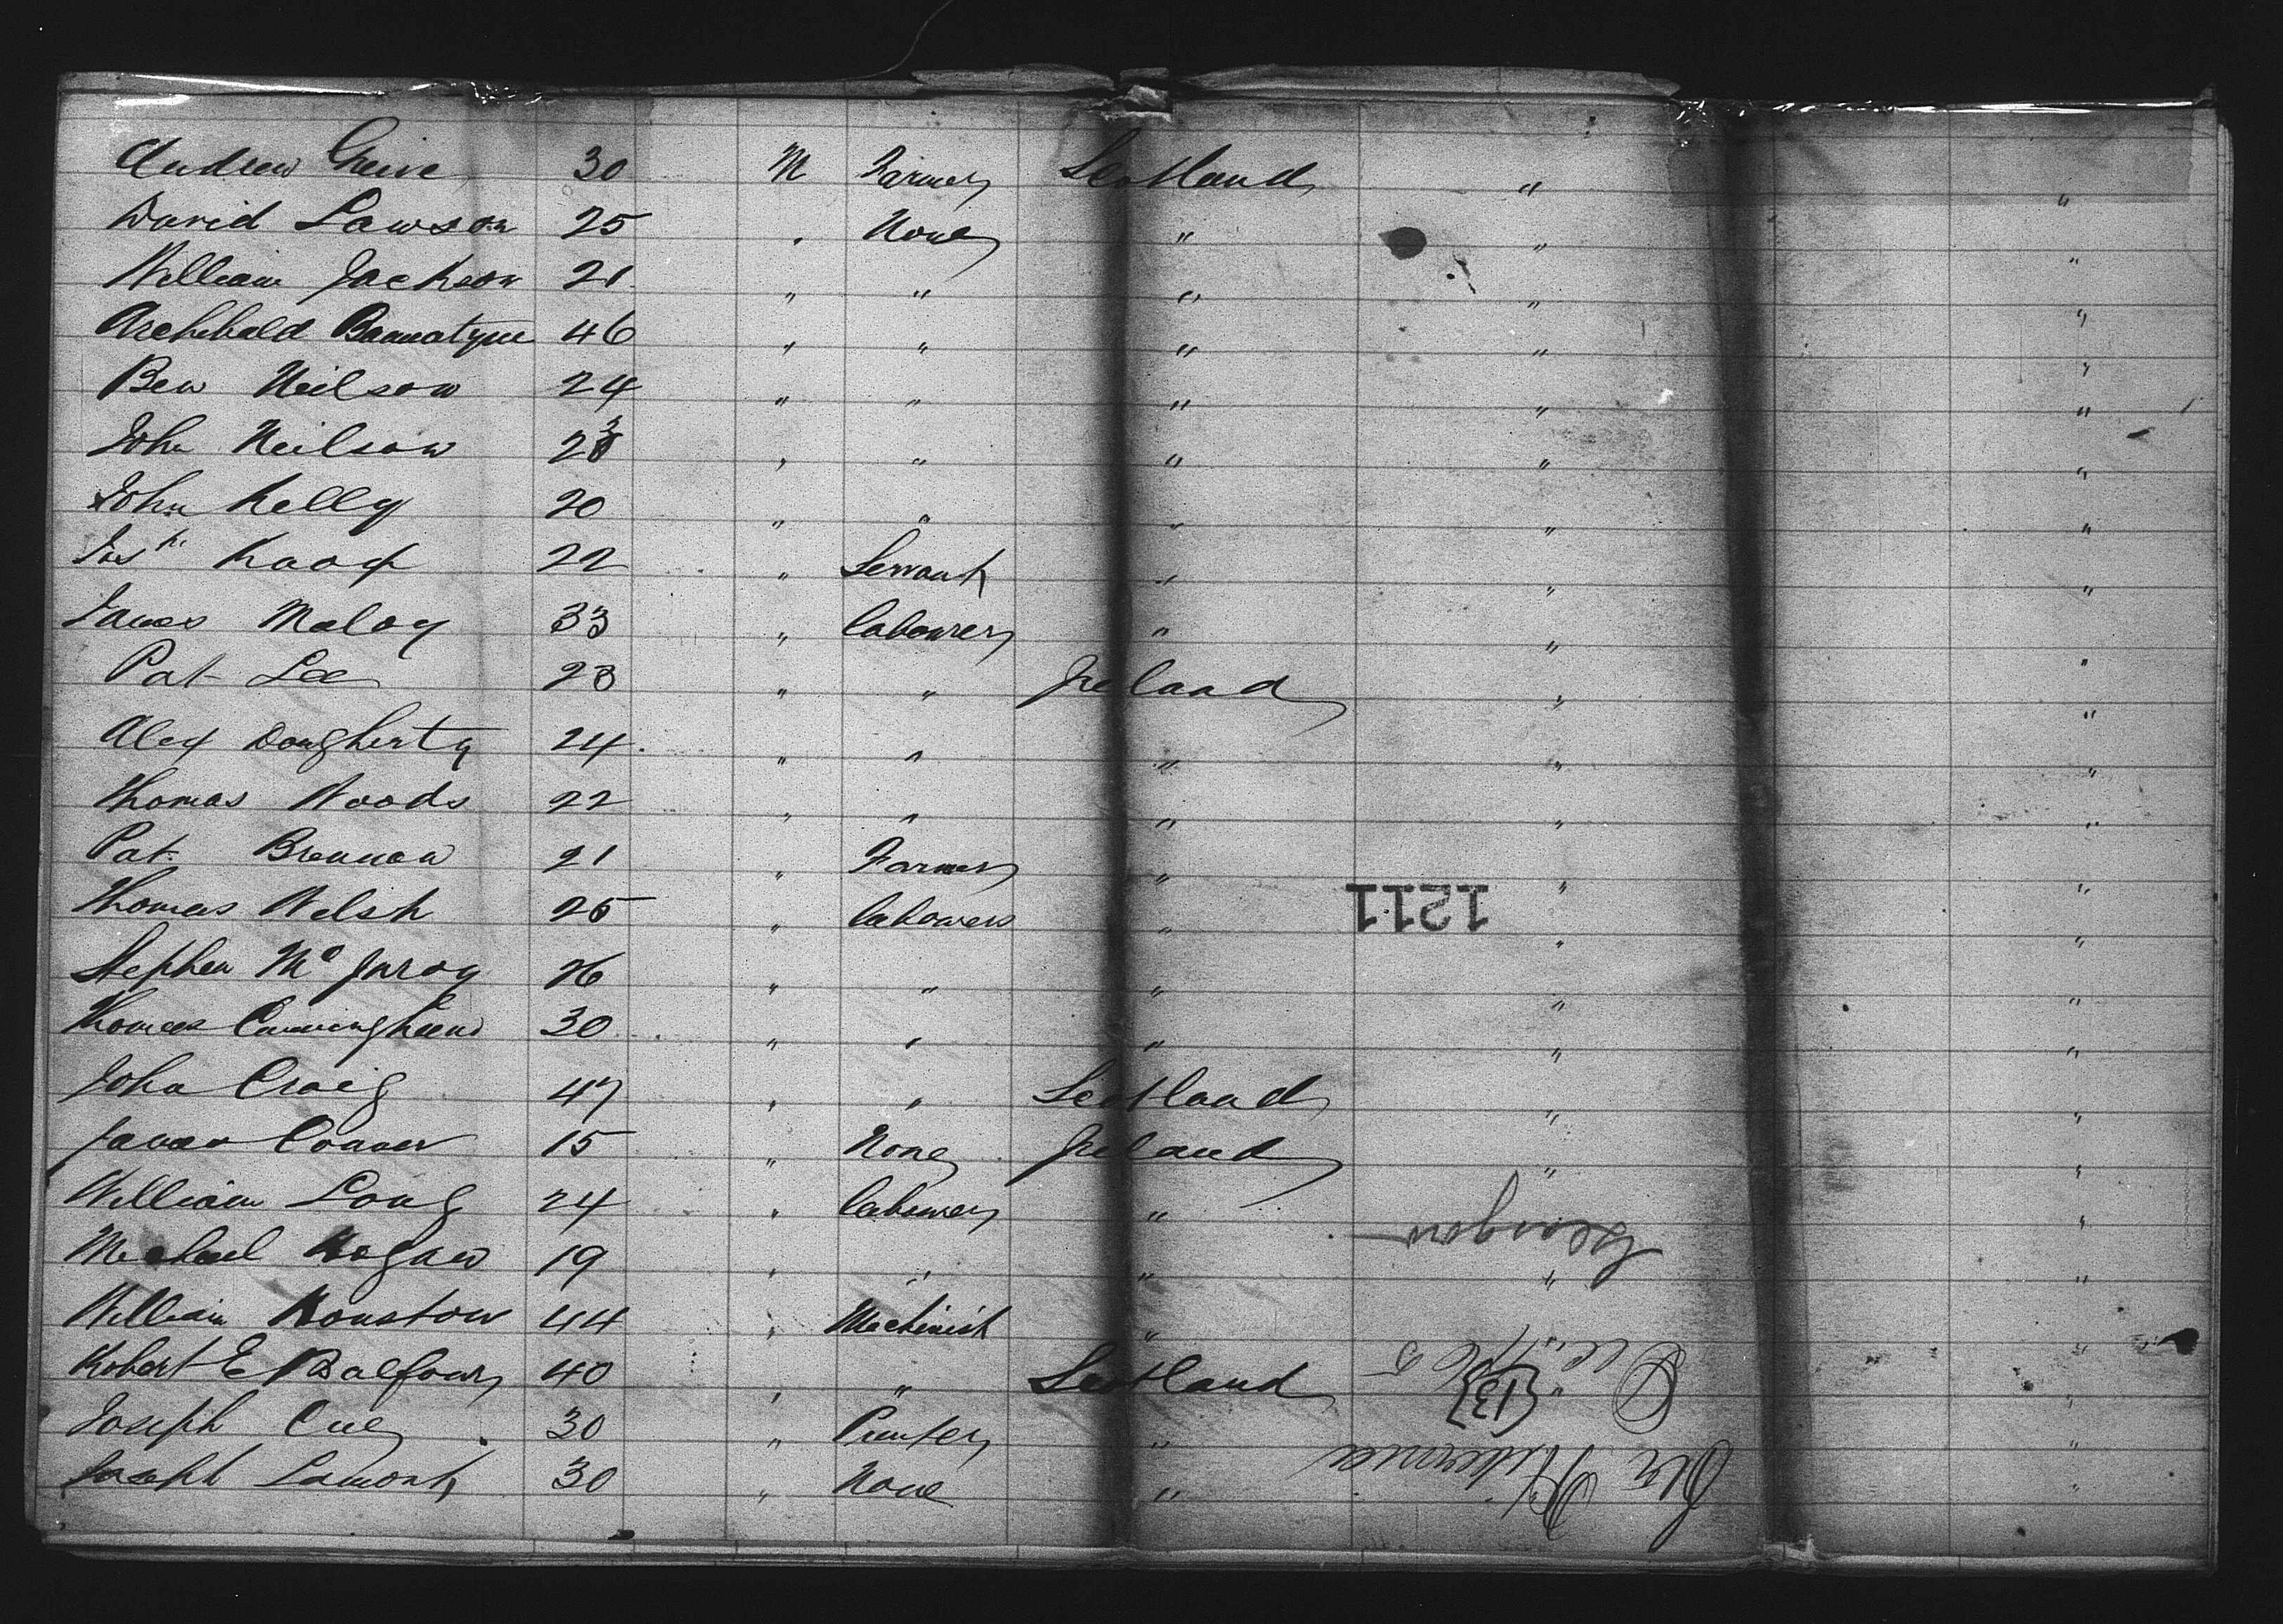 Andrew Greive 30 M Farmer Scotland " "
David Lawson 25 " None " " "
William Jackson 21 " " " " "
Archibald Bannatyne 46 " " " " "
Ben Neilson 24 " " " " "
John Neilson 23 " " " " "
John Kelly 20 " " " " "
Jos h. 22 " Servant " " "
James Maloy 33 " labourer " " "
Pat Lee 23 " " Ireland " "
Alex Dougherty 24 " " " " "
Thomas Woods 22 " " " " "
Pat. Brennan 21 " Farmer " " "
Thomas Welsh 25 " labourer " " "
Stephen 26 " " " " "
Thomas Cunningham 30 " " " " "
John Craig 47 " " Scotland " "
James Conner 15 " None Ireland " "
William Long 24 " labourer " " "
Michael Hogan 19 " " " " "
William Houston 44 " Machinist " " "
Robert E Balfour 40 " " Scotland " "
Joseph 30 " " "
Joseph Lamont 30 " None " "
Str Hibernia
{137
Glasgow
1211